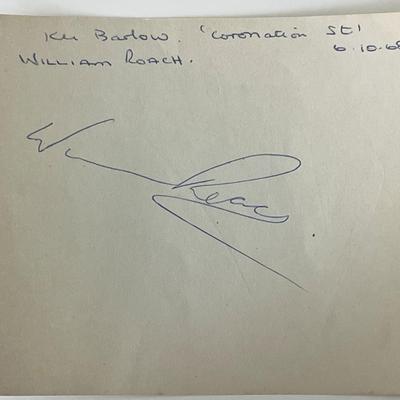 Ken Barlow. 'Coronation St'
WILLIAM ROACH. 6.10.68
W Roac